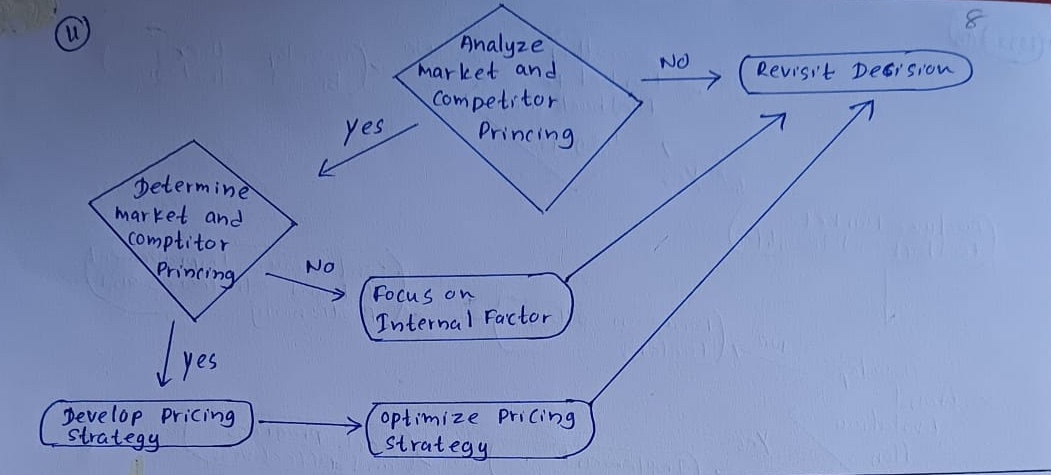 U
8
Analyze
market and
Competitor
Princing
NO
Revisit Decision
yes
Determine
market and
comptitor
Princing
NO
Focus on
Internal Factor
yes
Develop Pricing
Strategy
optimize Pricing
Strategy